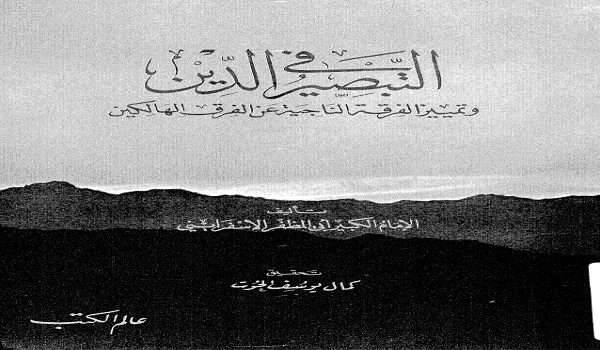 التبصير في الدين
وتمييز الفرقة الناجية عن الفرق الهالكين
تأليف
الإمام الكبير أبي المظفر الإسفرايني
تحقيق
كمال يوسف الحوت
عالم الكتب